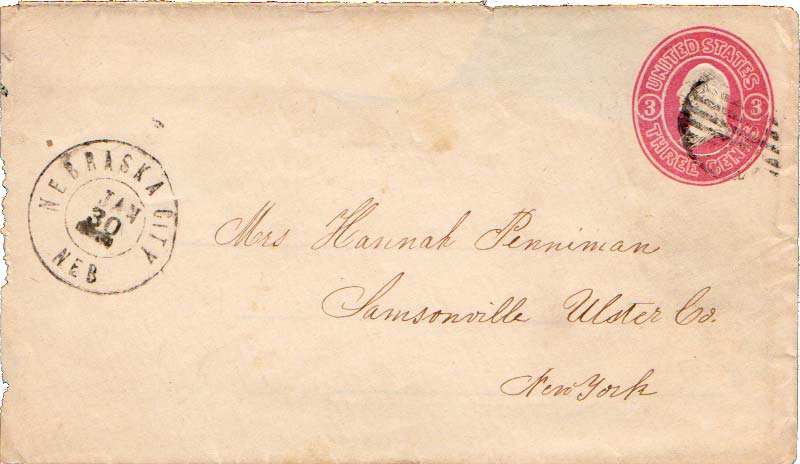 UNITED STATES
3 3
THREE CENTS
NEBRASKA CITY
JAN
30
NEB
Mrs Hannah Penniman
Samsonville Ulster Co.
New York